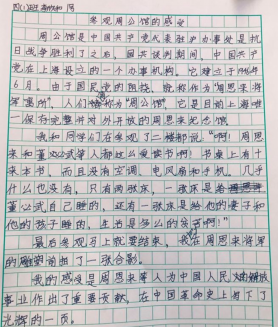 四(1)班
参观周公馆的感受
周公馆是中国共产党代表驻沪办事处是抗
日战争胜利了之后,国共谈判期间,中国共产
党在上海设立的一个办事机构。它建立于1946年
6月。由于国民党的阻挠,就称作“周恩来将
军寓所”,人们称为“周公馆”。它是目前上海唯
一保存完整并对外开放的周恩来纪念馆
我和同学们在参观了二楼都说:“啊!周恩
来和董必武等人都这么爱读书啊!书桌上有十
来本书,而且没有空调、电风扇和手机。几乎
什么也没有,只有两张床,一张床是给
董必武自己睡的,还有一张床是给他的妻子和
他的孩子睡的,生活是多么的
最后参观马上就要结束,我在周恩来将军
的雕塑前拍了一张合影。
我的感受是周恩来等人为中国人民的解放
事业作出了重要贡献,在中国革命史上留下了
光辉的一页。